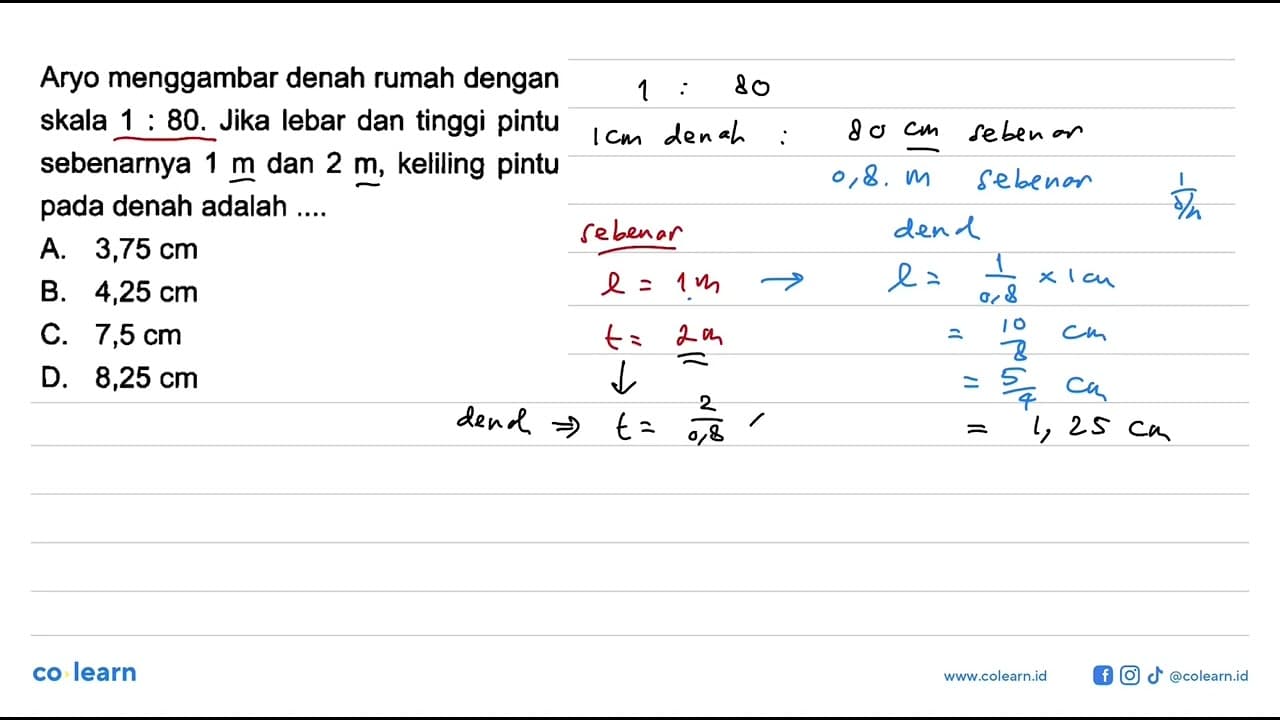 Aryo menggambar denah rumah dengan
skala 1 : 80. Jika lebar dan tinggi pintu
sebenarnya 1 m dan 2 m, keliling pintu
pada denah adalah ....
A. 3,75 cm
B. 4,25 cm
C. 7,5 cm
D. 8,25 cm
1 : 80
1 cm denah : 80 cm sebenar
0,8. m sebenar
sebenar
l = 1 m →
t = 2 m
↓
l = 1/0,8 × 1 cm
= 10/8 cm
= 5/4 cm
= 1,25 cm
⇒ t = 2/0,8
co learn
www.colearn.id
@colearn.id